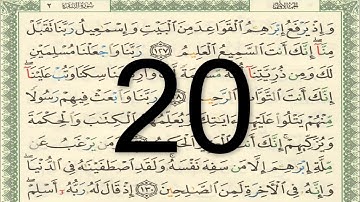 الجزء الأول سُورَةُ البَقَرَة ٢
وَإِذْ يَرْفَعُ إِبْرَٰهِـۧمُ ٱلْقَوَاعِدَ مِنَ ٱلْبَيْتِ وَإِسْمَٰعِيلُ رَبَّنَا تَقَبَّلْ
مِنَّآ إِنَّكَ أَنتَ ٱلسَّمِيعُ ٱلْعَلِيمُ ١٢٧ رَبَّنَا وَٱجْعَلْنَا مُسْلِمَيْنِ
لَكَ وَمِن ذُرِّيَّتِنَآ مُّسْلِمَةً مَنَاسِكَنَا وَتُبْ عَلَيْنَآ
إِنَّكَ أَنتَ ٱلتَّوَّابُ ٱلرَّحِيمُ وَٱبْعَثْ فِيهِمْ رَسُولًا
مِّنْهُمْ يَتْلُوا۟ عَلَيْهِمْ ٱلْكِتَٰبَ وَٱلْحِكْمَةَ
وَيُزَكِّيهِمْ إِنَّكَ وَمَن يَرْغَبُ عَن
مِّلَّةِ إِبْرَٰهِـۧمَ إِلَّا مَن سَفِهَ نَفْسَهُۥ وَلَقَدِ ٱصْطَفَيْنَٰهُ فِى ٱلدُّنْيَا
وَإِنَّهُۥ فِى ٱلْءَاخِرَةِ لَمِنَ ٱلصَّٰلِحِينَ ١٣٠ إِذْ قَالَ لَهُۥ رَبُّهُۥٓ أَسْلِمْ
20